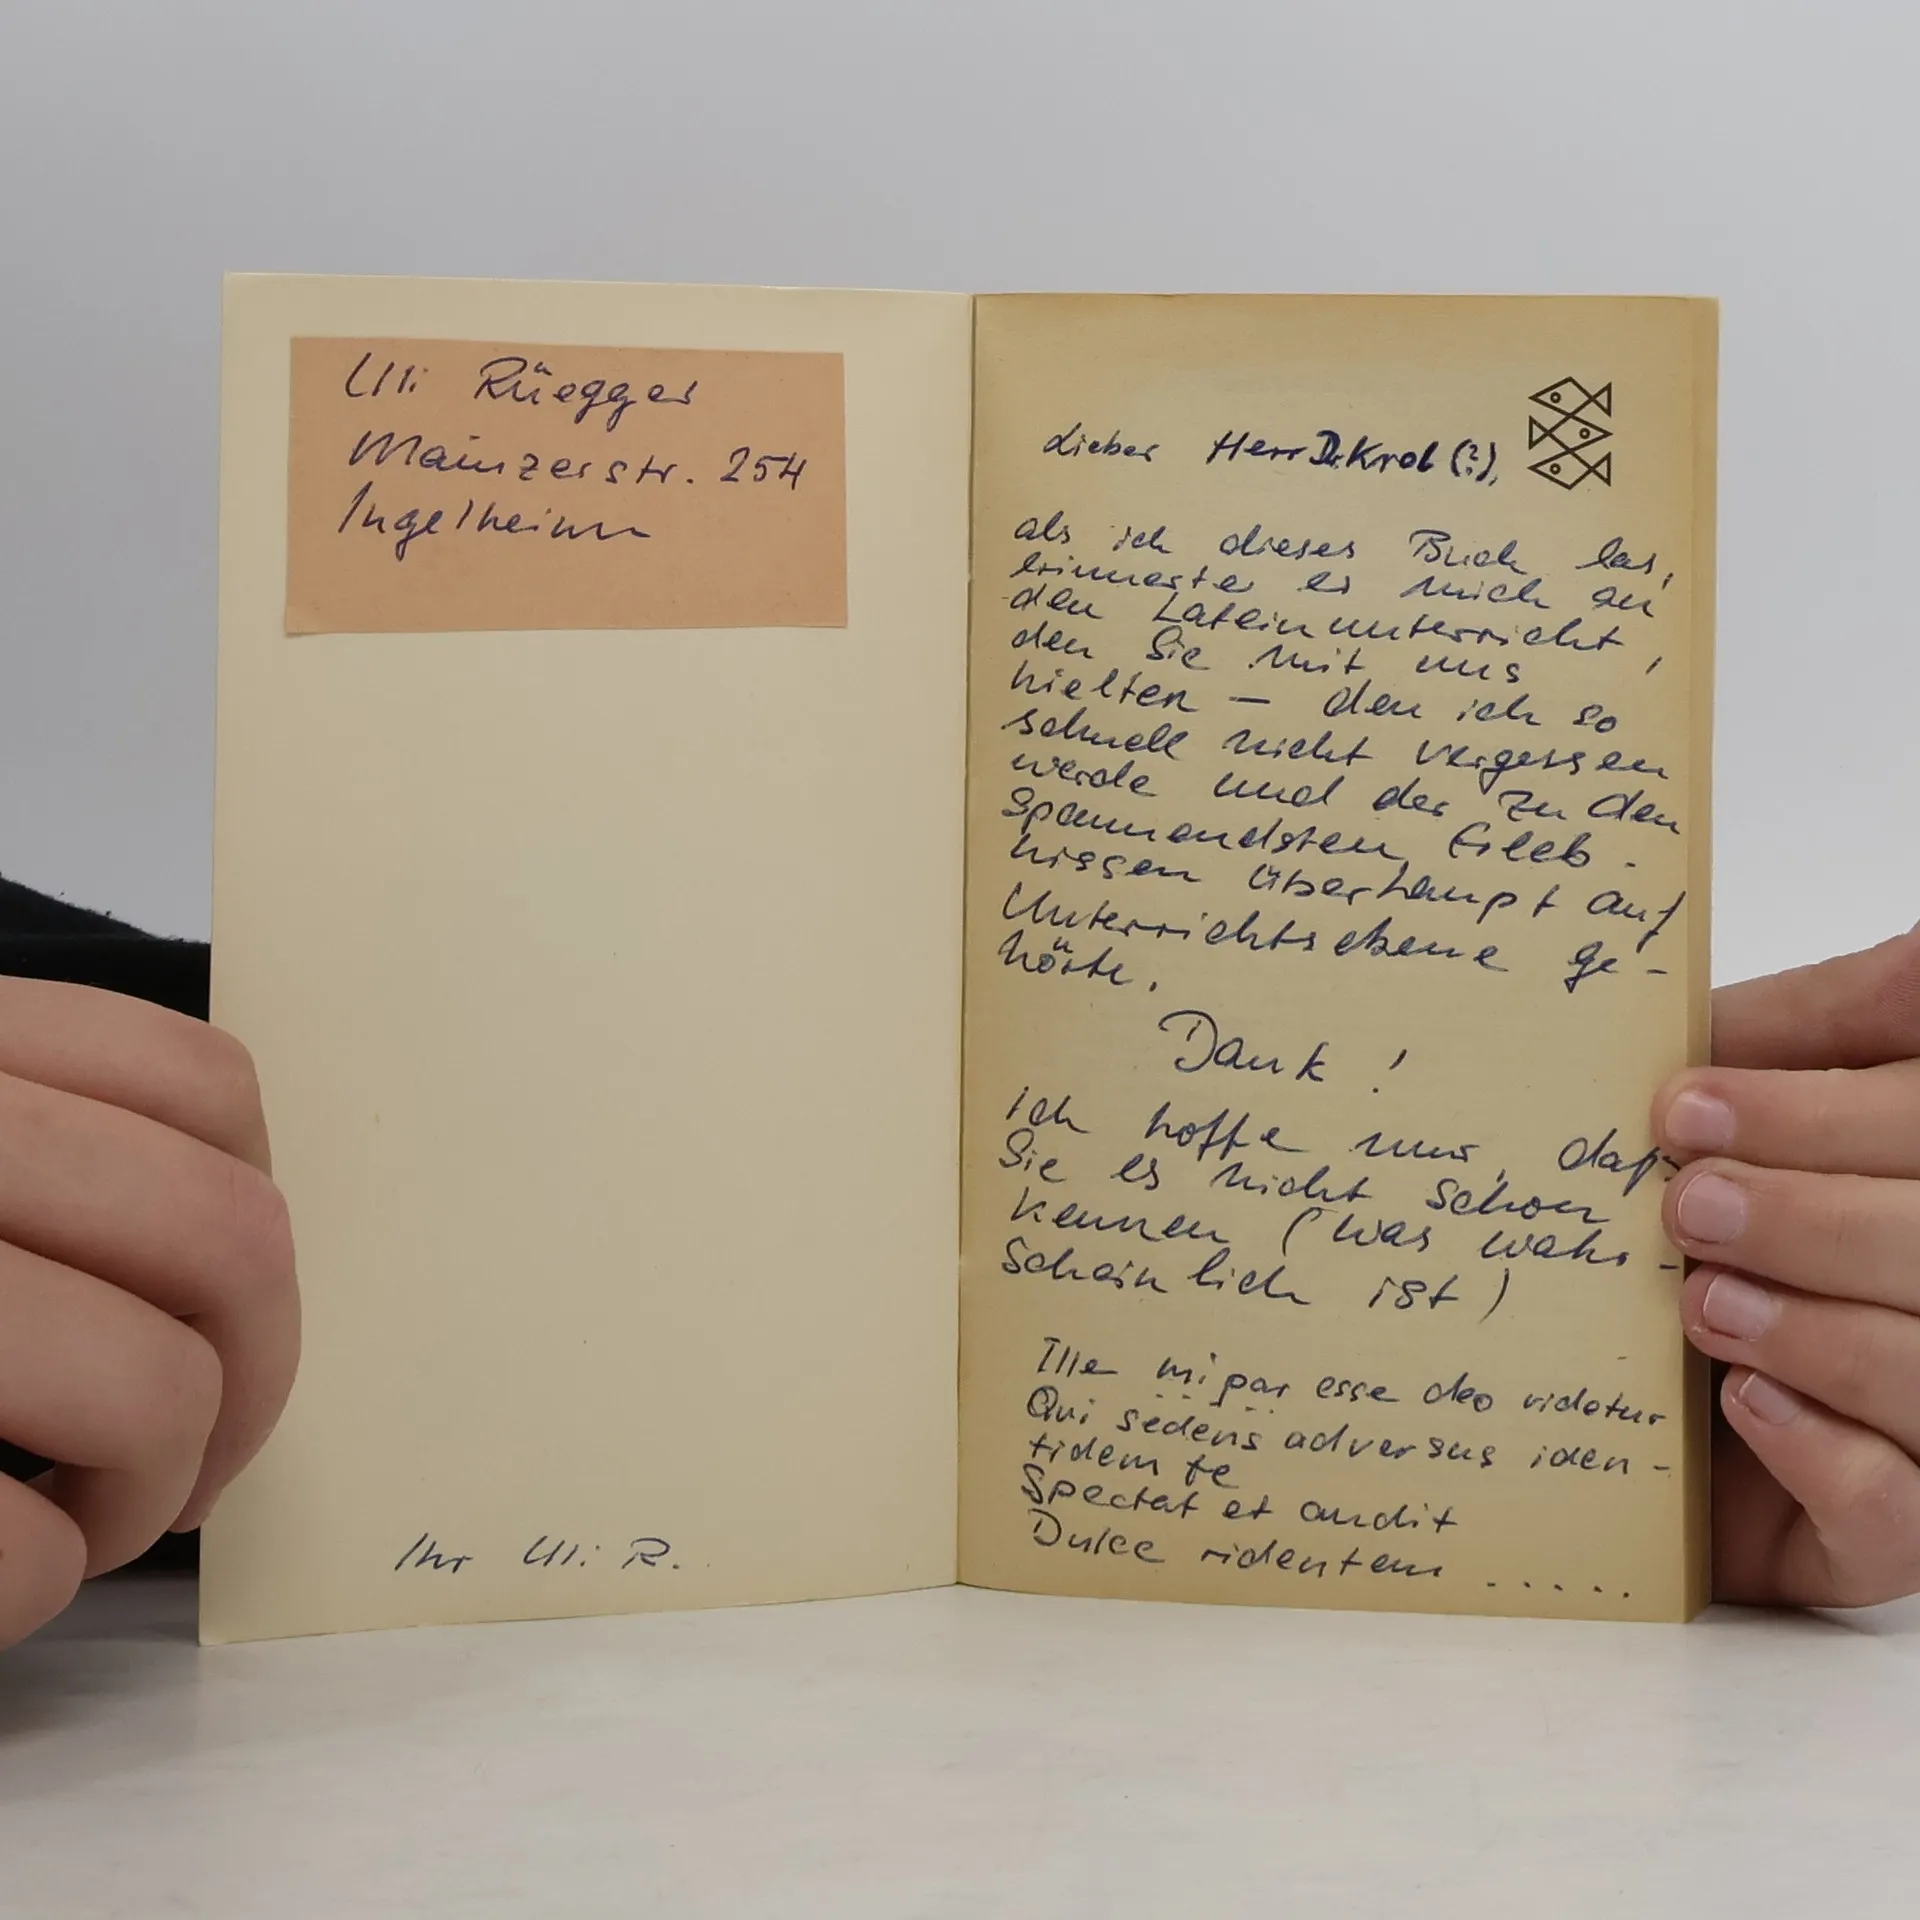 Uli Rüegger
Mainzerstr. 254
Ingelheim
Ihr Uli R.
Lieber Herr Dr. Krol (?),
als ich dieses Buch las,
erinnerte es mich an
den Lateinunterricht,
den Sie mit uns
hielten – den ich so
schnell nicht vergessen
werde und der zu den
spannendsten Erleb-
nissen überhaupt auf
Unterrichtsebene ge-
hörte.
Dank!
ich hoffe nur, daß
Sie es nicht schon
kennen (was wahr-
scheinlich ist)
Ille mi par esse deo videtur
Qui sedens adversus iden-
tidem te
Spectat et audit
Dulce ridentem .....